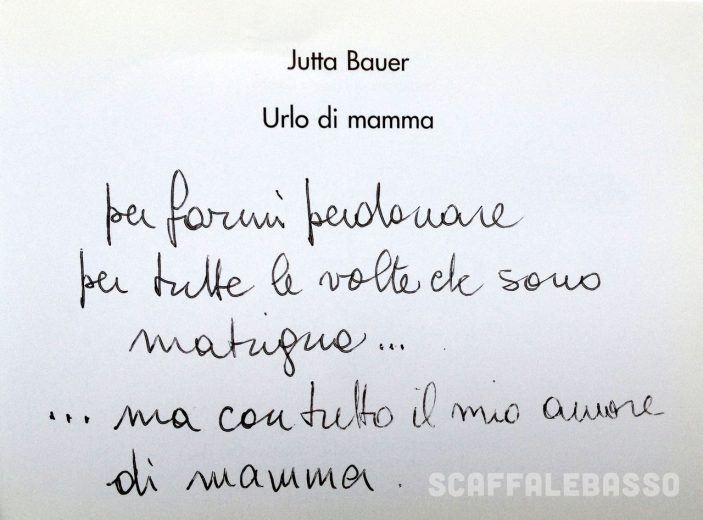 Jutta Bauer
Urlo di mamma
per farmi perdonare
per tutte le volte che sono
matrigna...
... ma con tutto il mio amore
di mamma.
SCAFFALEBASSO